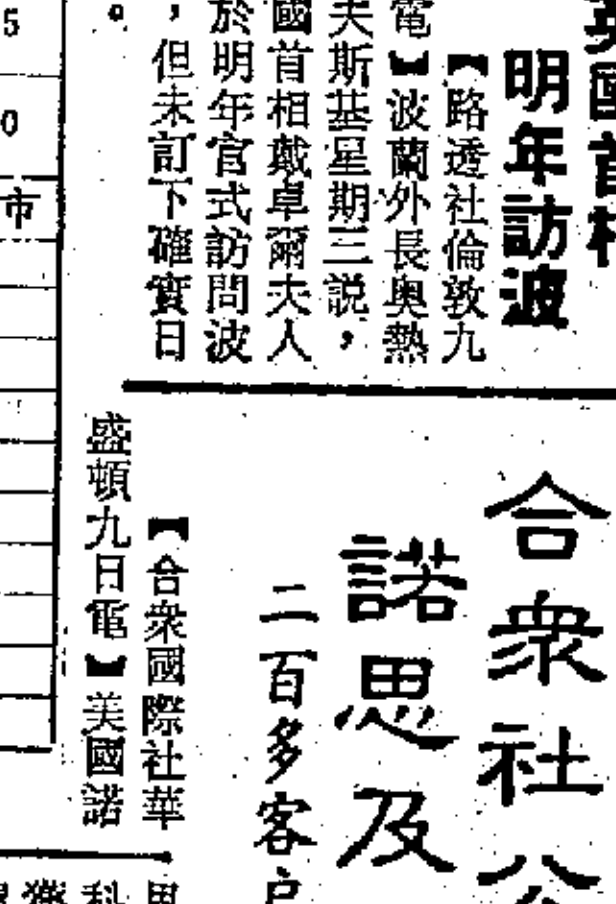 英國首相
明年訪波
【路透社倫敦九
電】波蘭外長奥熱
夫斯基星期三説，
國首相戴卓爾夫人
於明年官式訪問波
，但未訂下確實日
。
5
0
市
合衆社公
諾思及
二百多客户
【合衆國際社華
盛頓九日電】美國諾
思
科